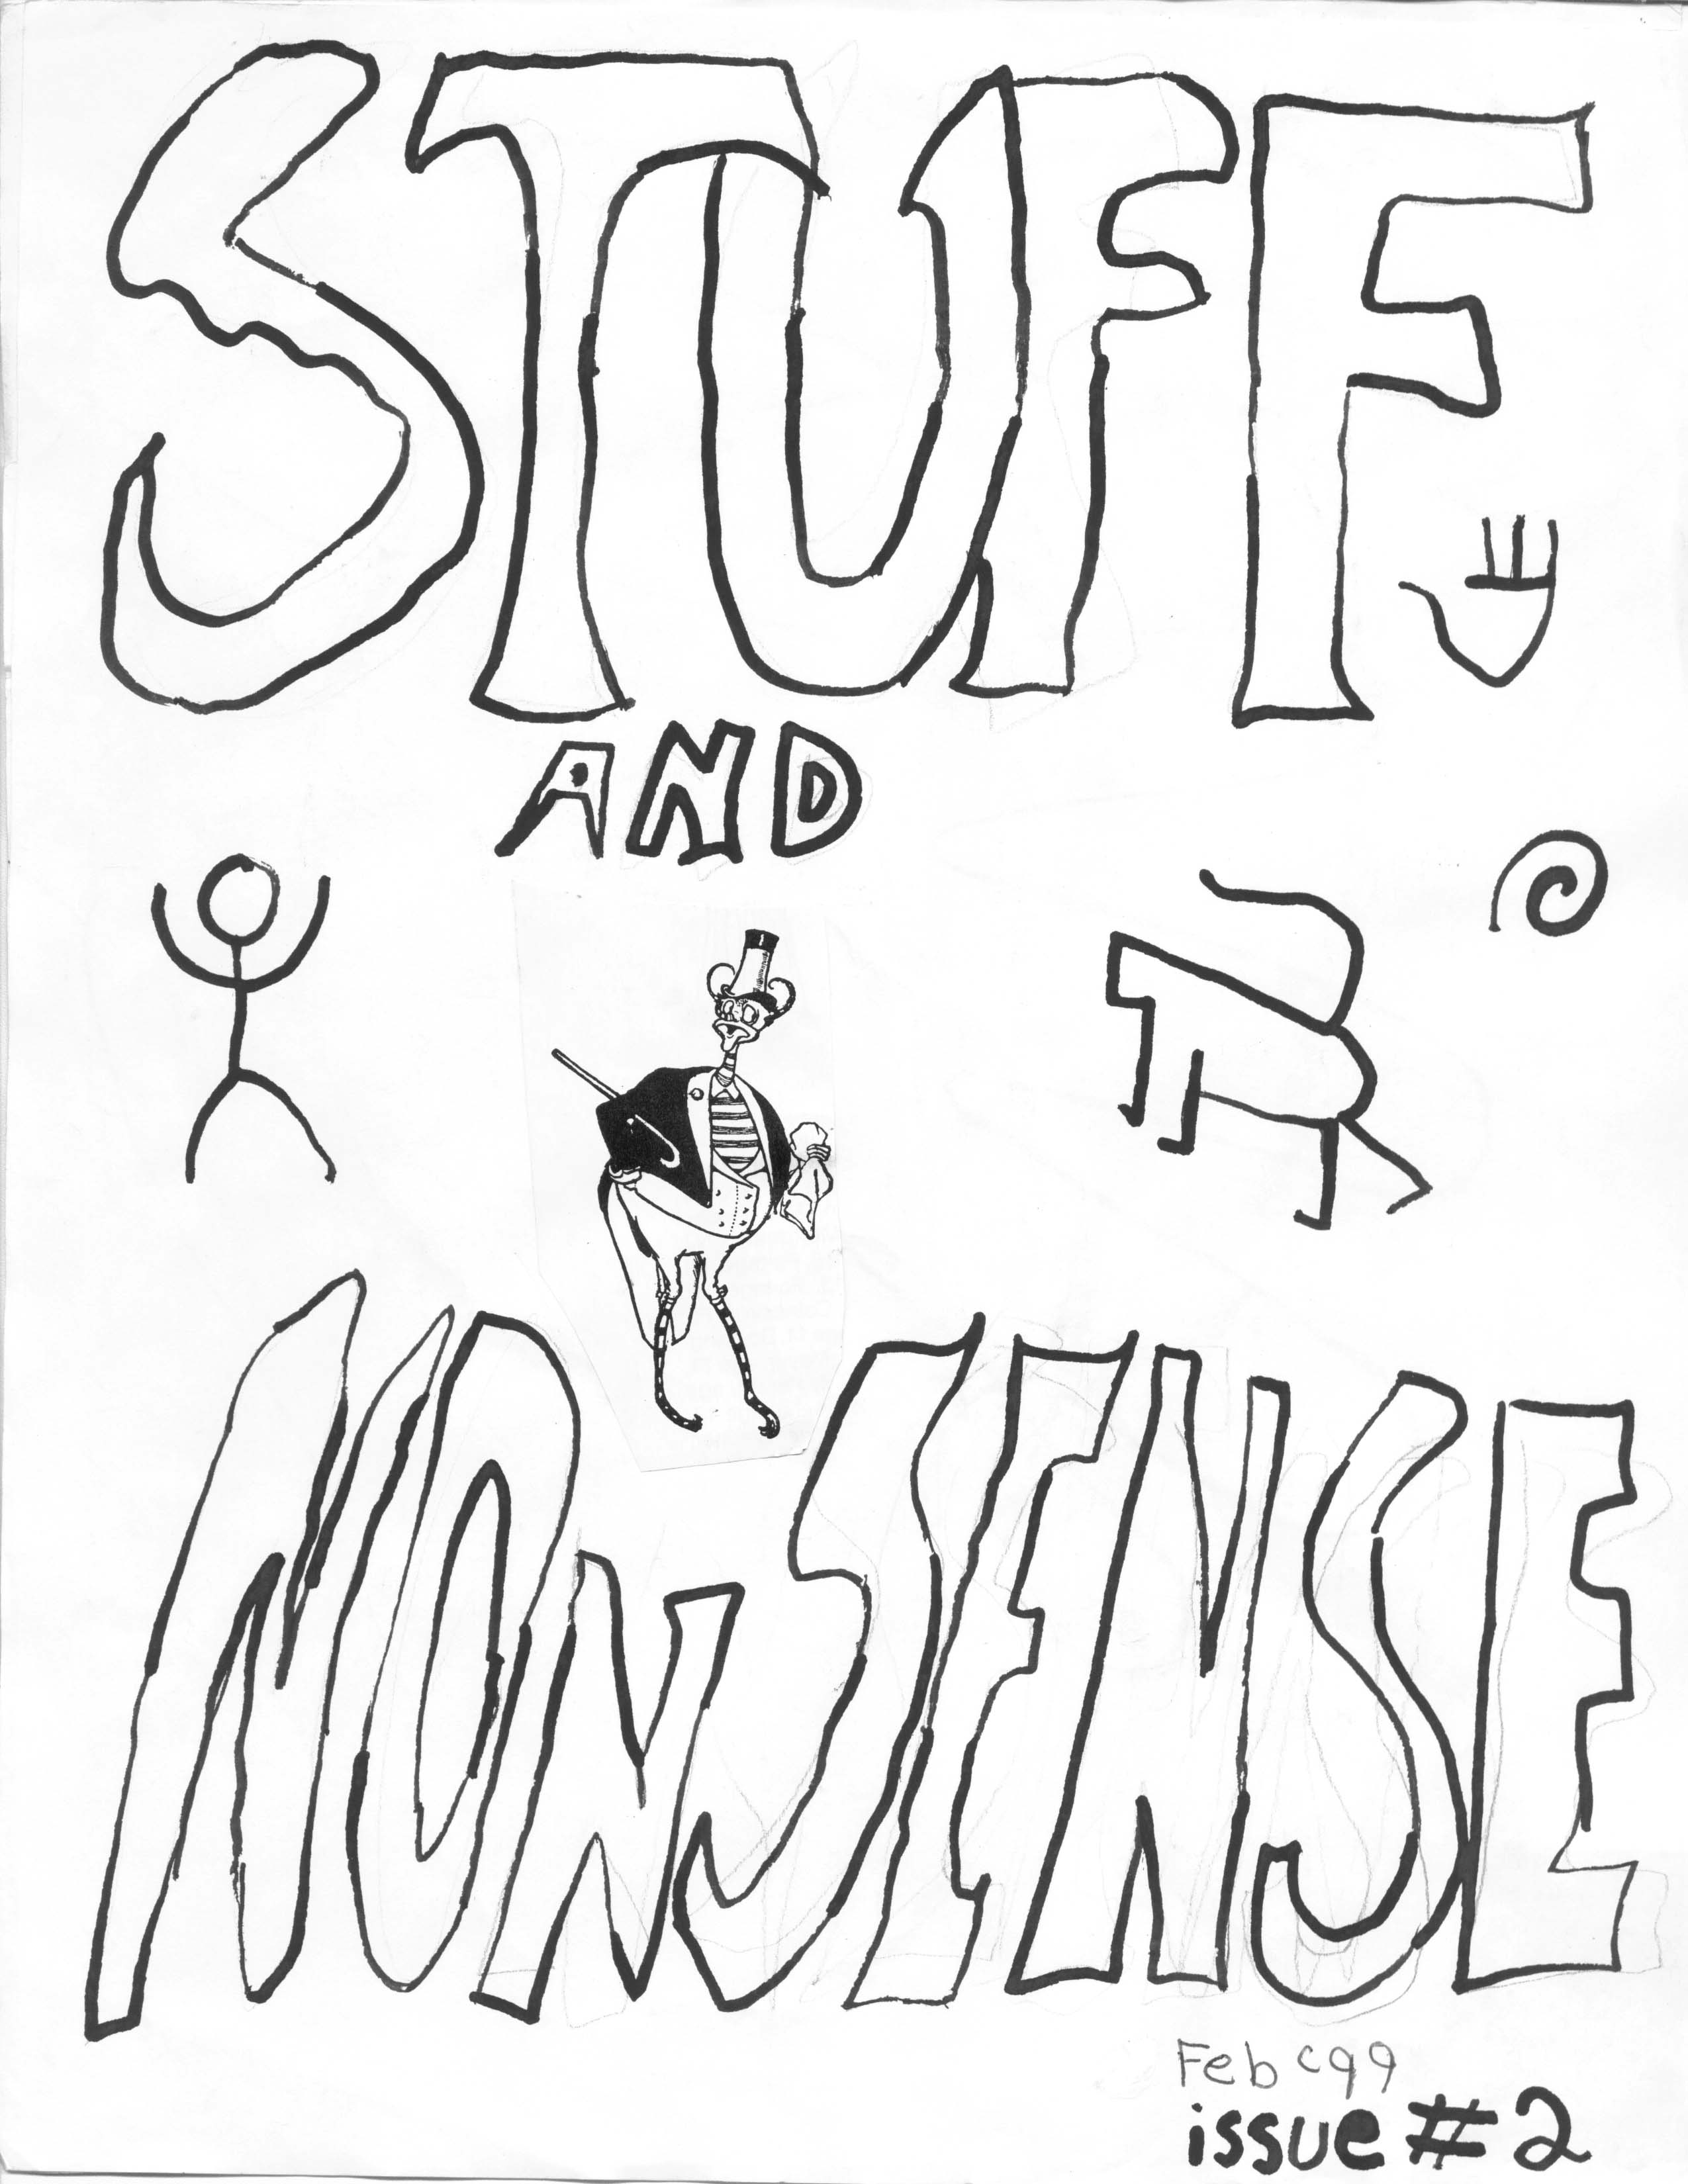 STUFF
AND
NONSENSE
Feb c99
issue #2